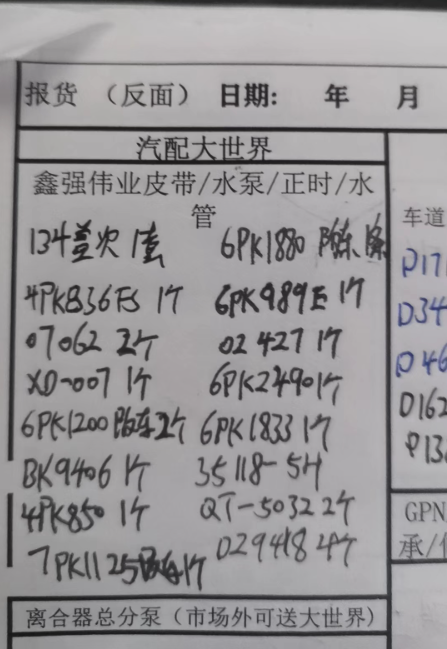 报货 （反面） 日期： 年 月
汽配大世界
鑫强伟业皮带/水泵/正时/水
管
车道
134盖次 1套 6PK1880 1条
4PK836ES 1个 6PK989E 1个
07062 2个 02427 1个
XD-007 1个 6PK2490 1个
6PK1200 2个 6PK1833 1个
BK9406 1个 35118-5H
4PK850 1个 QT-5032 2个
7PK1125 1个 029418 4个
D17
D34
D46
D162
P13
GPN
承/
离合器总分泵（市场外可送大世界）